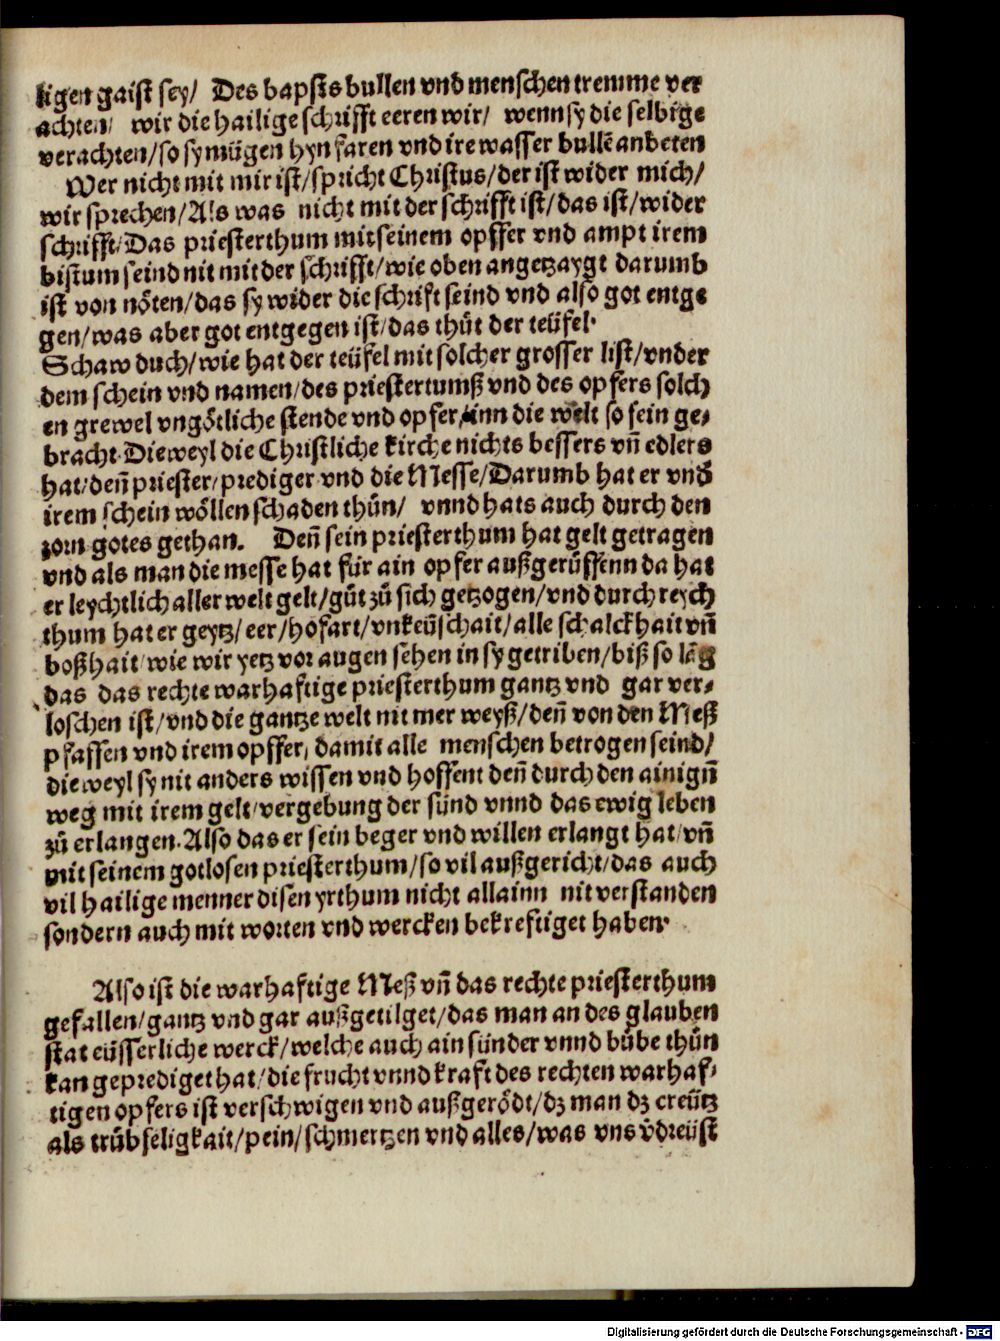 ligen gaist sey/ Des bapsts bullen vnd menschen tremme ver
achten/ wir die hailige schrifft eeren wir/ wenn sy die selbige
verachten/so sy mügen hyn faren vnd ire wasser bullē anbeten
Wer nicht mit mir ist/spricht Christus/der ist wider mich/
wir sprechen/Als was nicht mit der schrifft ist/das ist/wider
schrifft/Das priesterthum mit seinem opffer vnd ampt irem
bistum seind nit mit der schrifft/wie oben angetzaygt darumb
ist von nöten/das sy wider die schrift seind vnd also got entge
gen/was aber got entgegen ist/das thůt der teüfel.
Schaw duch/wie hat der teüfel mit solcher grosser list/vnder
dem schein vnd namen/des priestertumß vnd des opfers solch
en grewel vngötliche stende vnd opfer/inn die welt so fein ge⸗
bracht. Dieweyl die Christliche kirche nichts bessers vn̄ edlers
hat/den̄ priester/prediger vnd die Messe/Darumb hat er vnd̕
irem schein wöllen schaden thůn/ vnnd hats auch durch den
zorn gotes gethan. Den̄ sein priesterthum hat gelt getragen
vnd als man die messe hat für ain opfer außgerůffenn da hat
er leychtlich aller welt gelt/gůt zů sich getzogen/vnd durch reych
thum hat er geytz/eer/hofart/vnkeüschait/alle schalckhait vn̄
boßhait/wie wir yetz vor augen sehen in sy getriben/biß so lāg
das das rechte warhaftige priesterthum gantz vnd gar ver⸗
loschen ist/vnd die gantze welt nit mer weyß/den̄ von den Meß
pfaffen vnd irem opffer/damit alle menschen betrogen seind/
die weyl sy nit anders wissen vnd hoffent den̄ durch den ainign̄
weg mit irem gelt/vergebung der sünd vnnd das ewig leben
zů erlangen. Also das er sein beger vnd willen erlangt hat/vn̄
mit seinem gotlosen priesterthum/so vil außgericht/das auch
vil hailige menner disen yrthum nicht allainn nit verstanden
sondern auch mit worten vnd wercken bekreftiget haben.
Also ist die warhaftige Meß vn̄ das rechte priesterthum
gefallen/gantz vnd gar außgetilget/das man an des glauben
stat eüsserliche werck/welche auch ain sünder vnnd bůbe thůn
kan geprediget hat/die frucht vnnd kraft des rechten warhaf⸗
tigen opfers ist verschwigen vnd außgerödt/dz man dz creütz
als trübseligkait/pein/schmertzen vnd alles/was vns v̕dreüst
Digitalisierung gefördert durch die Deutsche Forschungsgemeinschaft - DFG